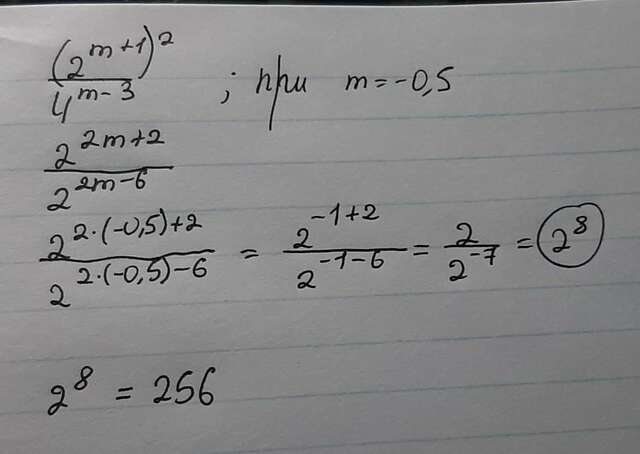 (2^{m+1})^2 / 4^{m-3} ; при m = -0,5
2^{2m+2} / 2^{2m-6}
2^{2·(-0,5)+2} / 2^{2·(-0,5)-6} = 2^{-1+2} / 2^{-1-6} = 2 / 2^{-7} = 2^8
2^8 = 256